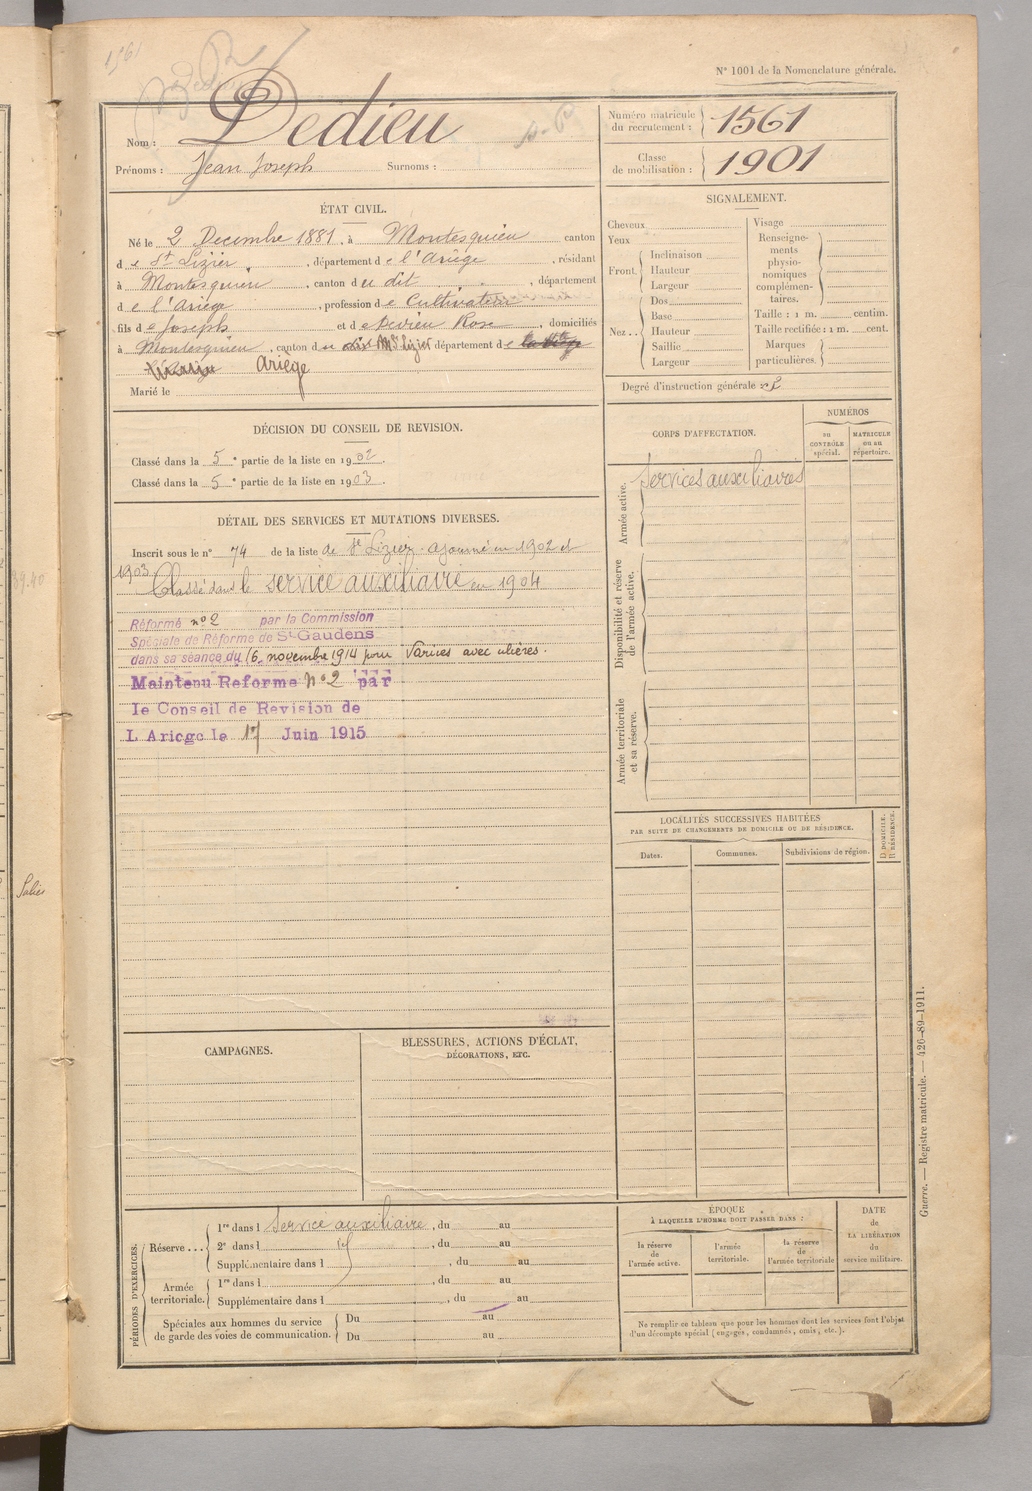 1561
N° 1001 de la Nomenclature générale.
Nom : Dedieu
Prénoms : Jean Joseph Surnoms :
Numéro matricule du recrutement : 1561
Classe de mobilisation : 1901
ÉTAT CIVIL.
Né le 2 Decembre 1881, à Montesquieu canton
de St Lizier, département de l'Ariège, résidant
à Montesquieu, canton du dit, département
de l'Ariège, profession de Cultivateur
fils de Joseph et de Dedieu Rose, domiciliés
à Montesquieu, canton du St Lizier département de
Ariège
Marié le
SIGNALEMENT.
Cheveux
Yeux
Front. Inclinaison
Hauteur
Largeur
Nez.. Dos
Base
Hauteur
Saillie
Largeur
Visage
Renseignements physionomiques complémentaires.
Taille : 1 m. centim.
Taille rectifiée : 1 m. cent.
Marques particulières.
Degré d'instruction générale :
DÉCISION DU CONSEIL DE REVISION.
Classé dans la 5e partie de la liste en 1902.
Classé dans la 5e partie de la liste en 1903.
CORPS D'AFFECTATION.
NUMÉROS
au CONTRÔLE spécial.
MATRICULE ou au répertoire.
Armée active.
Services auxiliaires
Disponibilité et réserve de l'armée active.
Armée territoriale et sa réserve.
DÉTAIL DES SERVICES ET MUTATIONS DIVERSES.
Inscrit sous le n° 74 de la liste de St Lizier. ajourné en 1902 et
1903 Classé dans le service auxiliaire en 1904
Réformé n°2 par la Commission
Spéciale de Réforme de St-Gaudens
dans sa séance du 16 novembre 1914 pour Varices avec ulcères.
Maintenu Reforme n°2 par
le Conseil de Revision de
L Ariege le 17 Juin 1915
LOCALITÉS SUCCESSIVES HABITÉES
PAR SUITE DE CHANGEMENTS DE DOMICILE OU DE RÉSIDENCE.
Dates.
Communes.
Subdivisions de région.
D DOMICILE.
R RÉSIDENCE.
CAMPAGNES.
BLESSURES, ACTIONS D'ÉCLAT,
DÉCORATIONS, ETC.
PÉRIODES D'EXERCICES.
Réserve... 1re dans l Service auxiliaire, du au
2e dans l , du au
Supplémentaire dans l , du au
Armée territoriale. 1re dans l , du au
Supplémentaire dans l , du au
Spéciales aux hommes du service de garde des voies de communication. Du au
Du au
ÉPOQUE
À LAQUELLE L'HOMME DOIT PASSER DANS :
la réserve de l'armée active.
l'armée territoriale.
la réserve de l'armée territoriale
DATE de LA LIBÉRATION du service militaire.
Ne remplir ce tableau que pour les hommes dont les services font l'objet
d'un décompte spécial (engagés, condamnés, omis, etc.).
Guerre. — Registre matricule. — 420-89-1911.